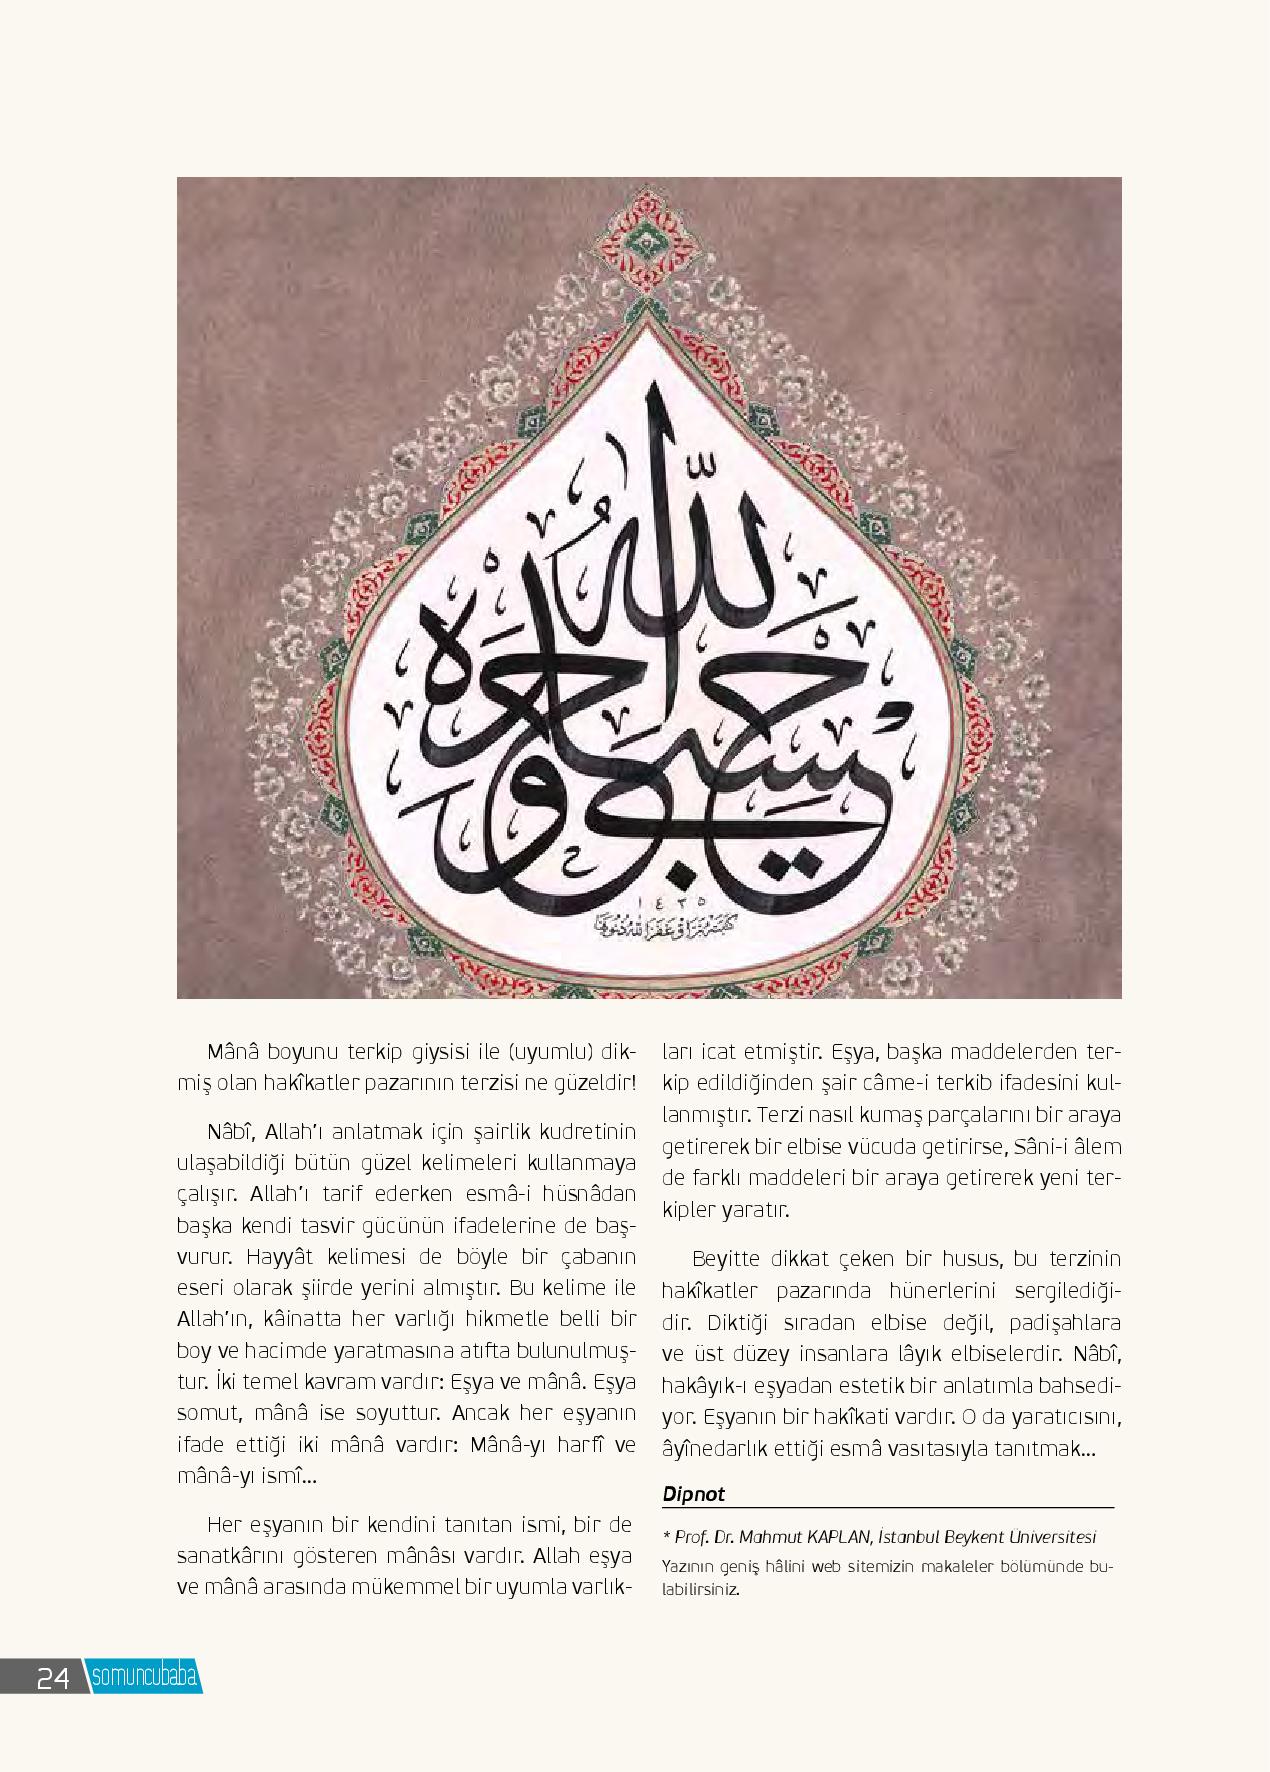 حسبي الله وحده
١٤٣٥
Mânâ boyunu terkip giysisi ile (uyumlu) dik-
miş olan hakîkatler pazarının terzisi ne güzeldir!
Nâbî, Allah’ı anlatmak için şairlik kudretinin
ulaşabildiği bütün güzel kelimeleri kullanmaya
çalışır. Allah’ı tarif ederken esmâ-i hüsnâdan
başka kendi tasvir gücünün ifadelerine de baş-
vurur. Hayyât kelimesi de böyle bir çabanın
eseri olarak şiirde yerini almıştır. Bu kelime ile
Allah’ın, kâinatta her varlığı hikmetle belli bir
boy ve hacimde yaratmasına atıfta bulunulmuş-
tur. İki temel kavram vardır: Eşya ve mânâ. Eşya
somut, mânâ ise soyuttur. Ancak her eşyanın
ifade ettiği iki mânâ vardır: Mânâ-yı harfî ve
mânâ-yı ismî...
Her eşyanın bir kendini tanıtan ismi, bir de
sanatkârını gösteren mânâsı vardır. Allah eşya
ve mânâ arasında mükemmel bir uyumla varlık-
ları icat etmiştir. Eşya, başka maddelerden ter-
kip edildiğinden şair câme-i terkib ifadesini kul-
lanmıştır. Terzi nasıl kumaş parçalarını bir araya
getirerek bir elbise vücuda getirirse, Sâni-i âlem
de farklı maddeleri bir araya getirerek yeni ter-
kipler yaratır.
Beyitte dikkat çeken bir husus, bu terzinin
hakîkatler pazarında hünerlerini sergilediği-
dir. Diktiği sıradan elbise değil, padişahlara
ve üst düzey insanlara lâyık elbiselerdir. Nâbî,
hakâyık-ı eşyadan estetik bir anlatımla bahsedi-
yor. Eşyanın bir hakîkati vardır. O da yaratıcısını,
âyînedarlık ettiği esmâ vasıtasıyla tanıtmak...
Dipnot
* Prof. Dr. Mahmut KAPLAN, İstanbul Beykent Üniversitesi
Yazının geniş hâlini web sitemizin makaleler bölümünde bu-
labilirsiniz.
24 somuncubaba